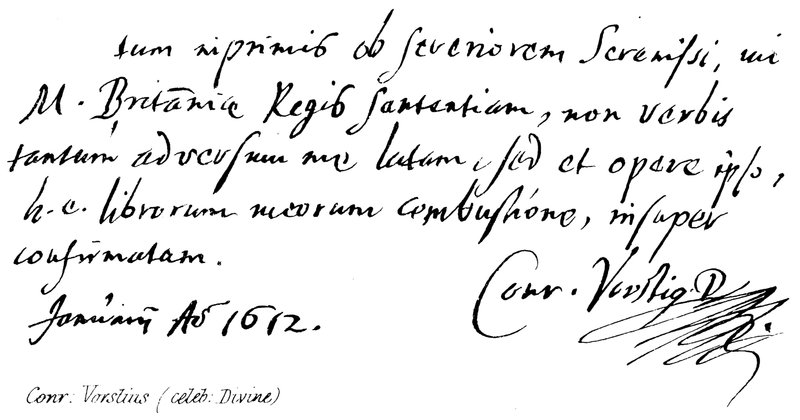 tum inprimis ob severiorem Serenissi, mi
M. Britāniæ Regis sententiam, non verbis
tantum adversum me latam, sed et opere ipso,
h. e. librorum meorum combustione, insuper
confirmatam.
Januarij Aº 1612.
Conr. Vorstiq. D
Conr: Vorstius (celeb: Divine)